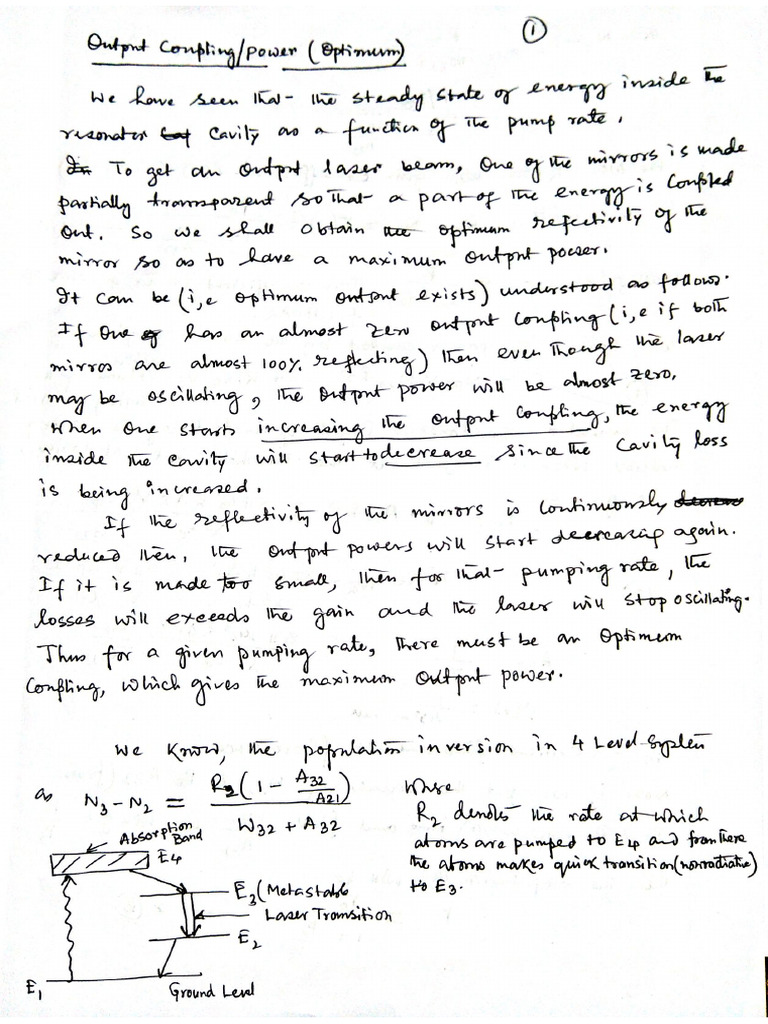 ①
Output Coupling/power (Optimum)
We have seen that the steady state of energy inside the
resonator cavity as a function of the pump rate.
To get an output laser beam, one of the mirrors is made
partially transparent so that a part of the energy is coupled
out. So we shall obtain the optimum reflectivity of the
mirror so as to have a maximum output power.
It can be (i,e optimum output exists) understood as follows.
If one has an almost zero output coupling (i,e if both
mirros are almost 100% reflecting) then even though the laser
may be oscillating, the output power will be almost zero.
When one starts increasing the output coupling, the energy
inside the cavity will start to decrease since the cavity loss
is being increased.
If the reflectivity of the mirrors is continuously
reduced then, the output powers will start decreasing again.
If it is made too small, then for that pumping rate, the
losses will exceeds the gain and the laser will stop oscillating.
Thus for a given pumping rate, there must be an optimum
coupling, which gives the maximum output power.
We know, the population inversion in 4 Level System
as N₃ - N₂ = R₂(1 - A₃₂/A₂₁) / W₃₂ + A₃₂
Where
R₂ denotes the rate at which
atoms are pumped to E₄ and from there
the atoms makes quick transition (nonradiative)
to E₃.
Absorption
Band
E₄
E₃ (Metastable
Laser Transition
E₂
E₁
Ground Level